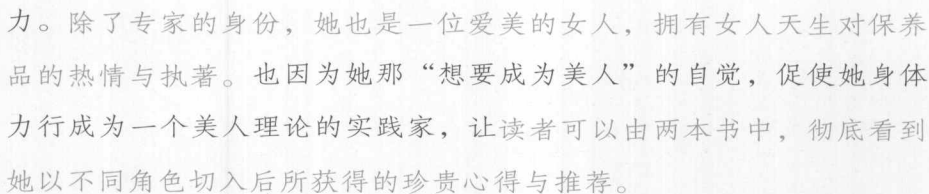 力。除了专家的身份，她也是一位爱美的女人，拥有女人天生对保养
品的热情与执著。也因为她那“想要成为美人”的自觉，促使她身体
力行成为一个美人理论的实践家，让读者可以由两本书中，彻底看到
她以不同角色切入后所获得的珍贵心得与推荐。